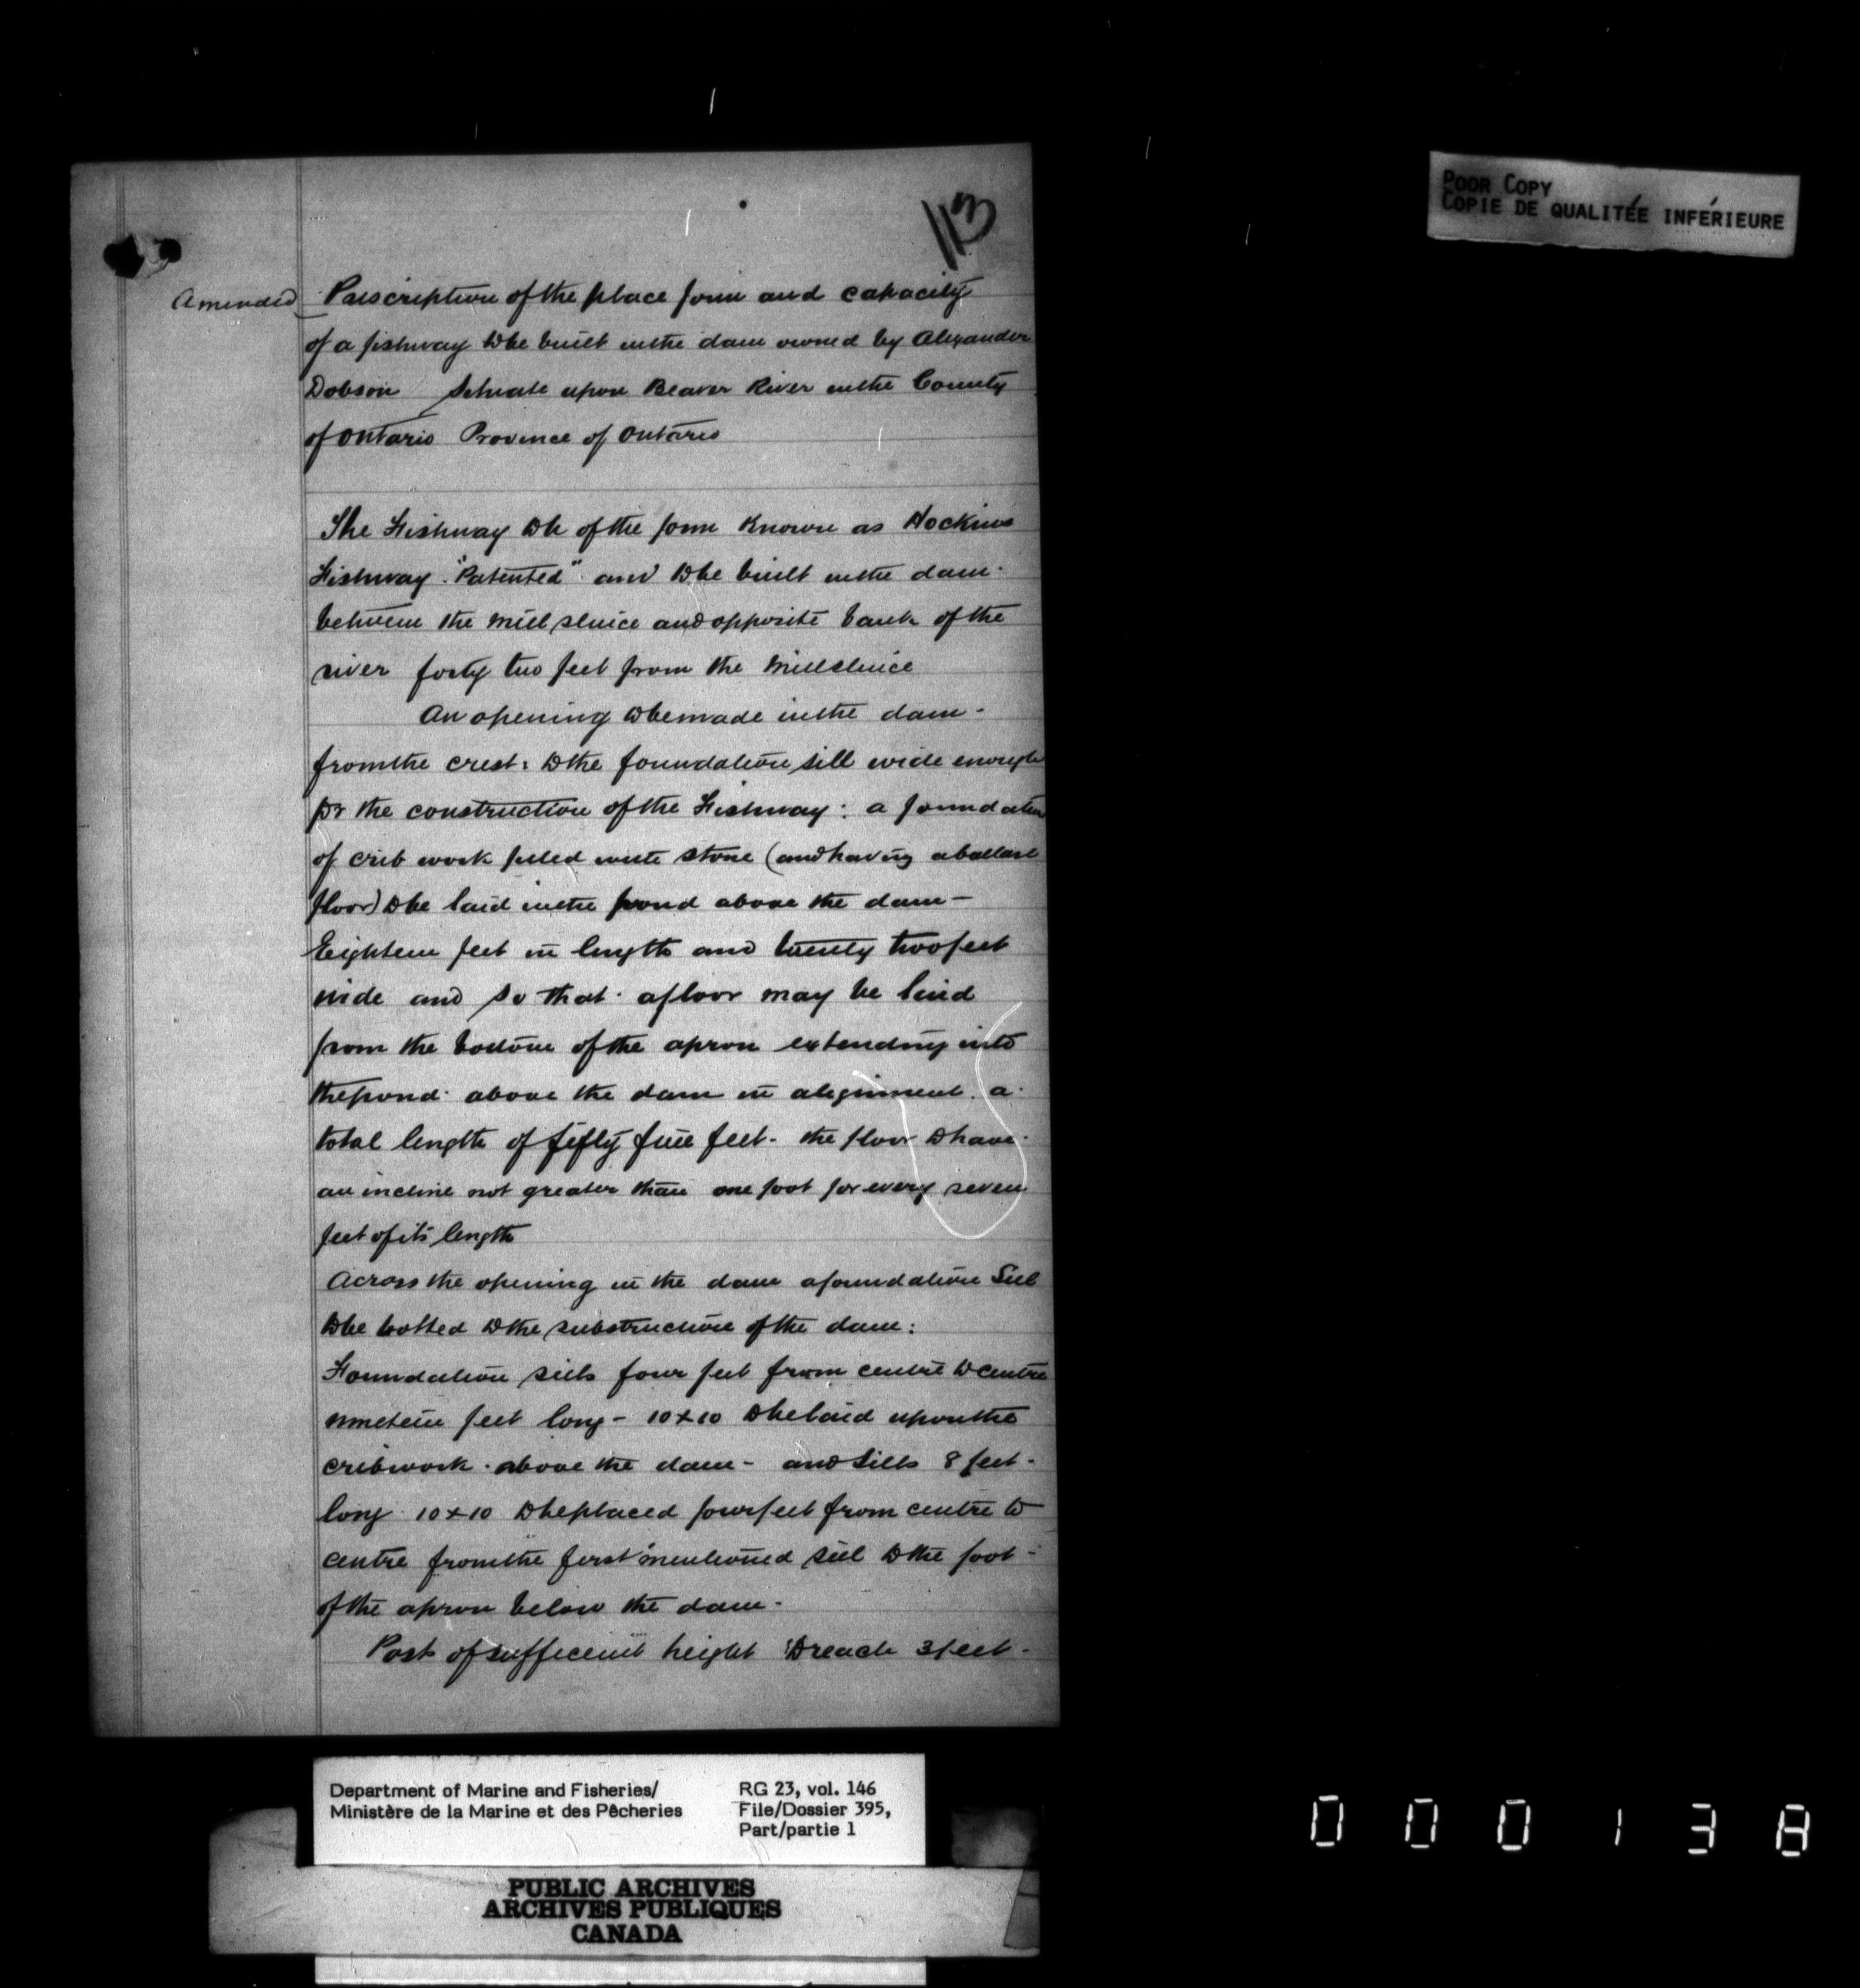 113
POOR COPY
COPIE DE QUALITÉE INFÉRIEURE
Amended Prescription of the place form and capacity
of a fishway to be built in the dam owned by Alexander
Dobson situate upon Beaver River in the County
of Ontario Province of Ontario
The Fishway to be of the form known as Hockins
Fishway "Patented" and to be built in the dam
between the mill sluice and opposite bank of the
river forty two feet from the mill sluice
An opening to be made in the dam -
from the crest to the foundation sill wide enough
for the construction of the Fishway: a foundation
of crib work filled with stone (and having a ballast
floor) to be laid in the pond above the dam -
Eighteen feet in length and twenty two feet
wide and so that a floor may be laid
from the bottom of the apron extending into
the pond above the dam in alignment a
total length of fifty five feet - the floor to have
an incline not greater than one foot for every seven
feet of its length
Across the opening in the dam a foundation sill
to be bolted to the substructure of the dam:
Foundation sills four feet from centre to centre
nineteen feet long - 10x10 to be laid upon the
cribwork above the dam - and sills 8 feet -
long 10x10 to be placed four feet from centre to
centre from the first mentioned sill to the foot -
of the apron below the dam -
Posts of sufficient height to reach 3 feet -
Department of Marine and Fisheries/
Ministère de la Marine et des Pêcheries
RG 23, vol. 146
File/Dossier 395,
Part/partie 1
PUBLIC ARCHIVES
ARCHIVES PUBLIQUES
CANADA
000138